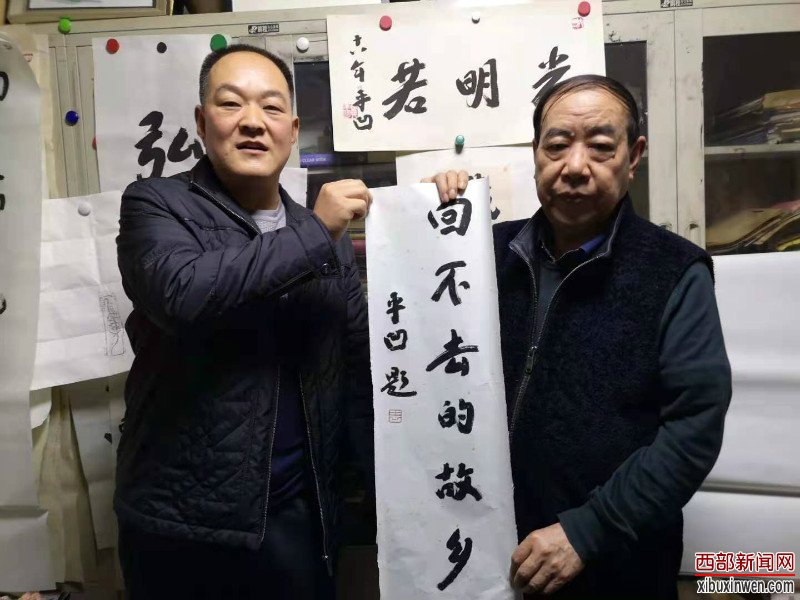 明若
年平凹
弘
回不去的故乡
平凹题
西部新闻网
xibuxinwen.com